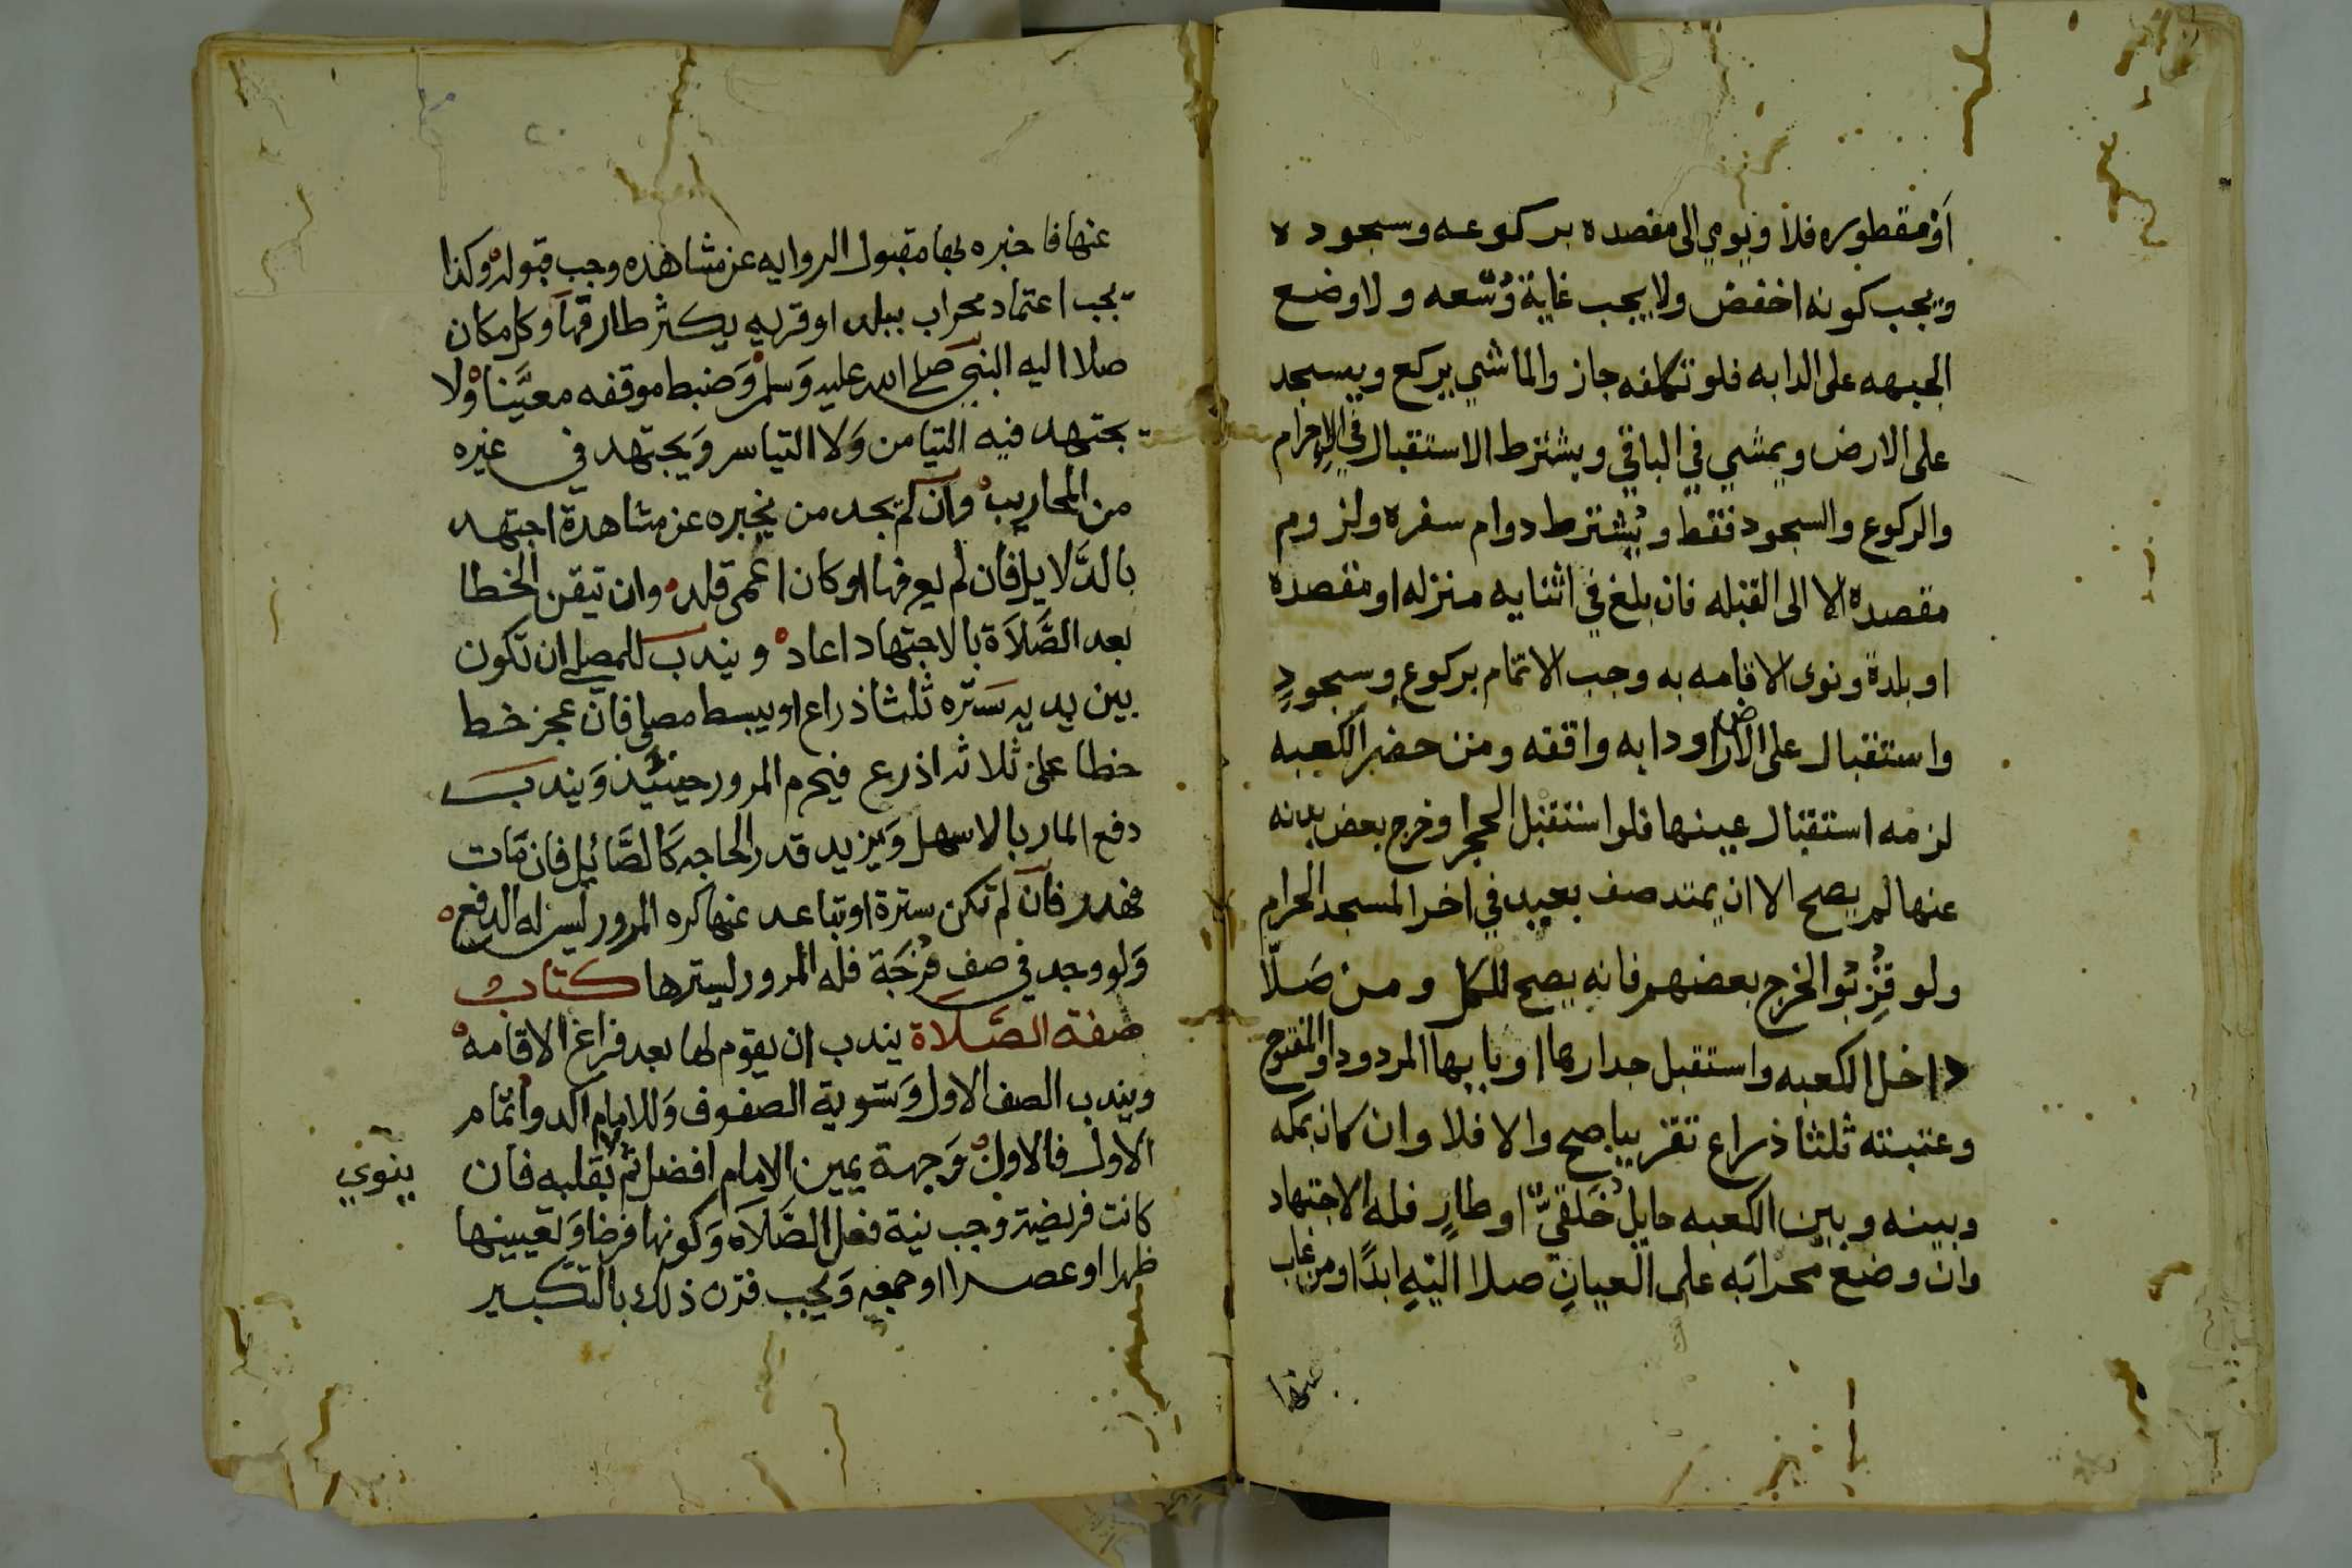 أو مقطوره فلا ويومي الى مقصده بركوعه وسجوده
ويجب كونه اخفض ولا يجب غاية وُسْعه ولا وضع
الجبهه على الدابه فلو تكلفه جاز والماشي يركع ويسجد
على الارض ويمشي في الباقي ويشترط الاستقبال في الإحرام
والركوع والسجود فقط ويُشترط دوام سفره ولزوم
مقصده الا الى القبله فان بلغ في اثنايه منزله او مقصده
او بلدة ونوى الاقامه به وجب الاتمام بركوعٍ وسجودٍ
واستقبال على الارض او دابه واقفه ومن حضر الكعبه
لزمه استقبال عينها فلو استقبل الحجر او خرج بعض بدنه
عنها لم يصح الا ان يمتد صف بعيد في اخر المسجد الحرام
ولو قرِّبُوا لخرج بعضهم فانه يصح للكل ومن صَلّا
داخل الكعبه واستقبل جدارها او بابها المردود او المفتوح
وعتبته ثلثا ذراع تقريبا صح والا فلا وان كان بمكه
وبينه وبين الكعبه حايل خَلقيٌّ او طارٍ فله الاجتهاد
وان وضع محرابَه على العيانِ صلا اليْهِ ابدًا ومن غاب
عنها
عنها فاخبره بها مقبول الروايه عن مشاهده وجب قبوله وكذا
يجب اعتماد محراب ببلد او قريه يكثر طارقها وكل مكان
صلا اليه النبي صلى الله عليه وَسلم وَضبط موقفه معيَّنا ولا
يجتهد فيه التيامن وَلا التياسر وَيجتهد في غيره
من المحاريب وان لم يجد من يخبره عن مشاهدة اجتهد
بالدَّلايل فان لم يعرفها او كان اعمى قلد وان تيقن الخطا
بعد الصَّلاَة بالاجتهاد اعاد ويندب للمصلي ان تكون
بين يديه سَتره ثلثا ذراع او يبسط مصلى فان عجز خط
خطا على ثلاثه اذرع فيحرم المرور حينيذ وَيندب
دفع المار بالاسهل وَيزيد قدر الحاجه كَالصَّائل فان مَات
فهدر فان لم تكن سترة او تباعد عنها كره المرور ليس له الدفع
وَلو وجد في صف فُرْجَة فله المرور ليسترها كتاب
صفة الصَّلاَة يندب ان يقوم لها بعد فراغ الاقامه
ويندب الصف الاول وَتسوية الصفوف وَللامام اكد واتمام
الاول فالاول وَجهة يمين الامام افضل ثم بقلبه فان
ينوي
كانت فريضة وجب نية فعل الصَّلاَه وَكونها فرضا وَتعيينها
ظهرا او عصرا او جمعه وَيجب قرن ذلك بالتكبير